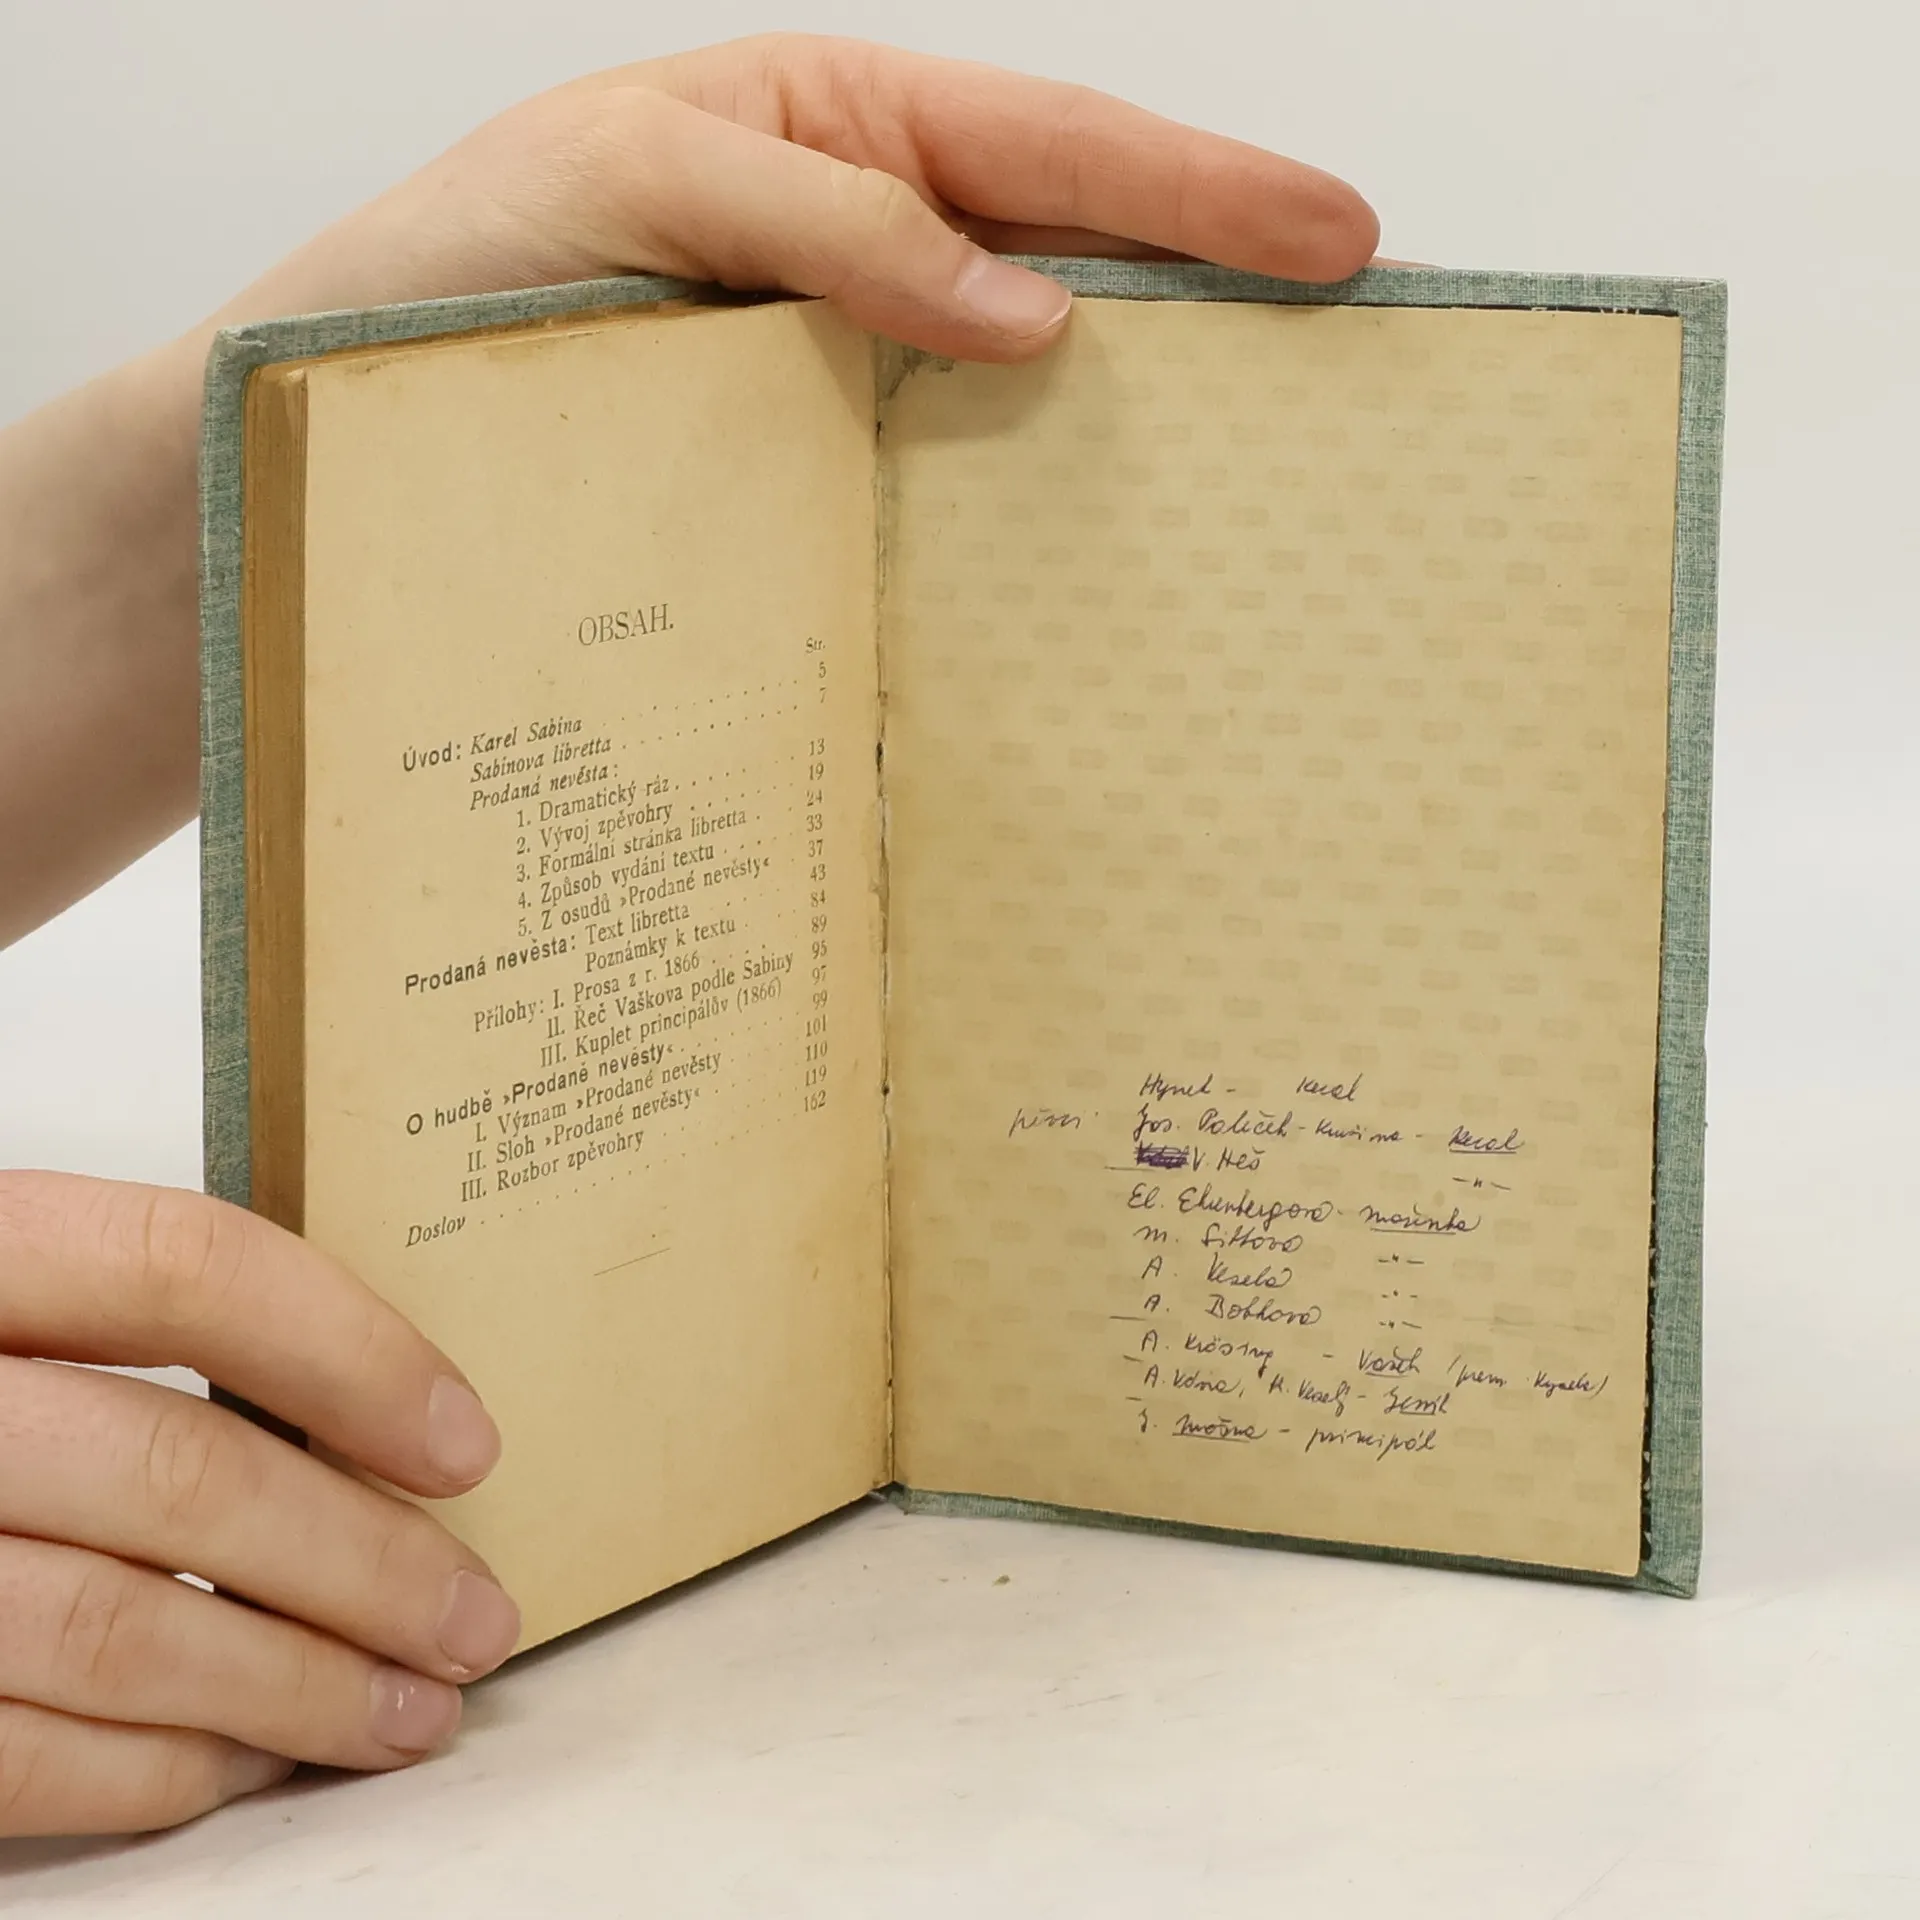 OBSAH.
Str.
Úvod: Karel Sabina . . . . . . . . . . 5
Sabinova libretta . . . . . . . . . 7
Prodaná nevěsta:
1. Dramatický ráz . . . . . . 13
2. Vývoj zpěvohry . . . . . . 19
3. Formální stránka libretta . . 24
4. Způsob vydání textu . . . . 33
5. Z osudů »Prodané nevěsty« . 37
Prodaná nevěsta: Text libretta . . . . . 43
Poznámky k textu . . . 84
Přílohy: I. Prosa z r. 1866 . . . . . 89
II. Řeč Vaškova podle Sabiny 95
III. Kuplet principálův (1866) 97
O hudbě »Prodané nevěsty« . . . . . . 99
I. Význam »Prodané nevěsty . . . . 101
II. Sloh »Prodané nevěsty« . . . . . 110
III. Rozbor zpěvohry . . . . . . . 119
Doslov . . . . . . . . . . . . . . 162
Hynek - Kecal
pěvci: Jos. Paleček - Krušina - Kecal
V. Heš -"-
El. Ehrenbergová - Mařenka
M. Sittová -"-
A. Veselá -"-
A. Bobková -"-
A. Krössing - Vašek
A. Vávra, K. Veselý - Jeník
J. Mošna - principál